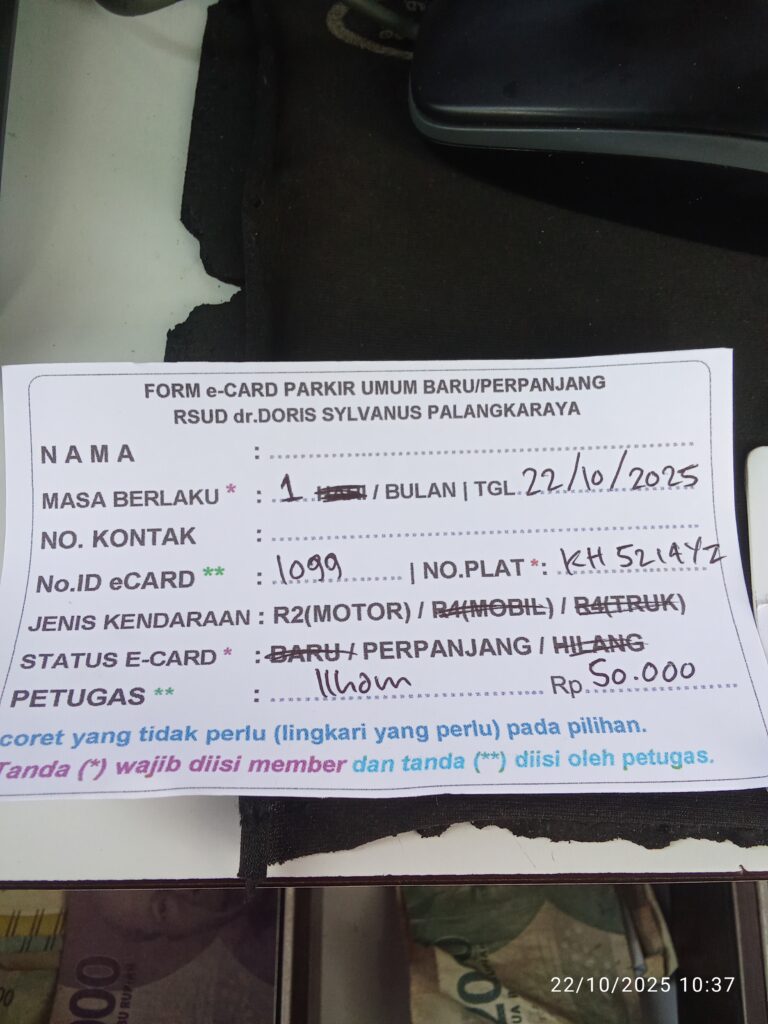 FORM e-CARD PARKIR UMUM BARU/PERPANJANG
RSUD dr.DORIS SYLVANUS PALANGKARAYA
N A M A :
MASA BERLAKU * : 1 HARI / BULAN | TGL 22/10/2025
NO. KONTAK :
No.ID eCARD ** : 1099 | NO.PLAT *: KH 5214YZ
JENIS KENDARAAN : R2(MOTOR) / R4(MOBIL) / R4(TRUK)
STATUS E-CARD * : BARU / PERPANJANG / HILANG
PETUGAS ** : Ilham Rp 50.000
coret yang tidak perlu (lingkari yang perlu) pada pilihan.
Tanda (*) wajib diisi member dan tanda (**) diisi oleh petugas.
22/10/2025 10:37